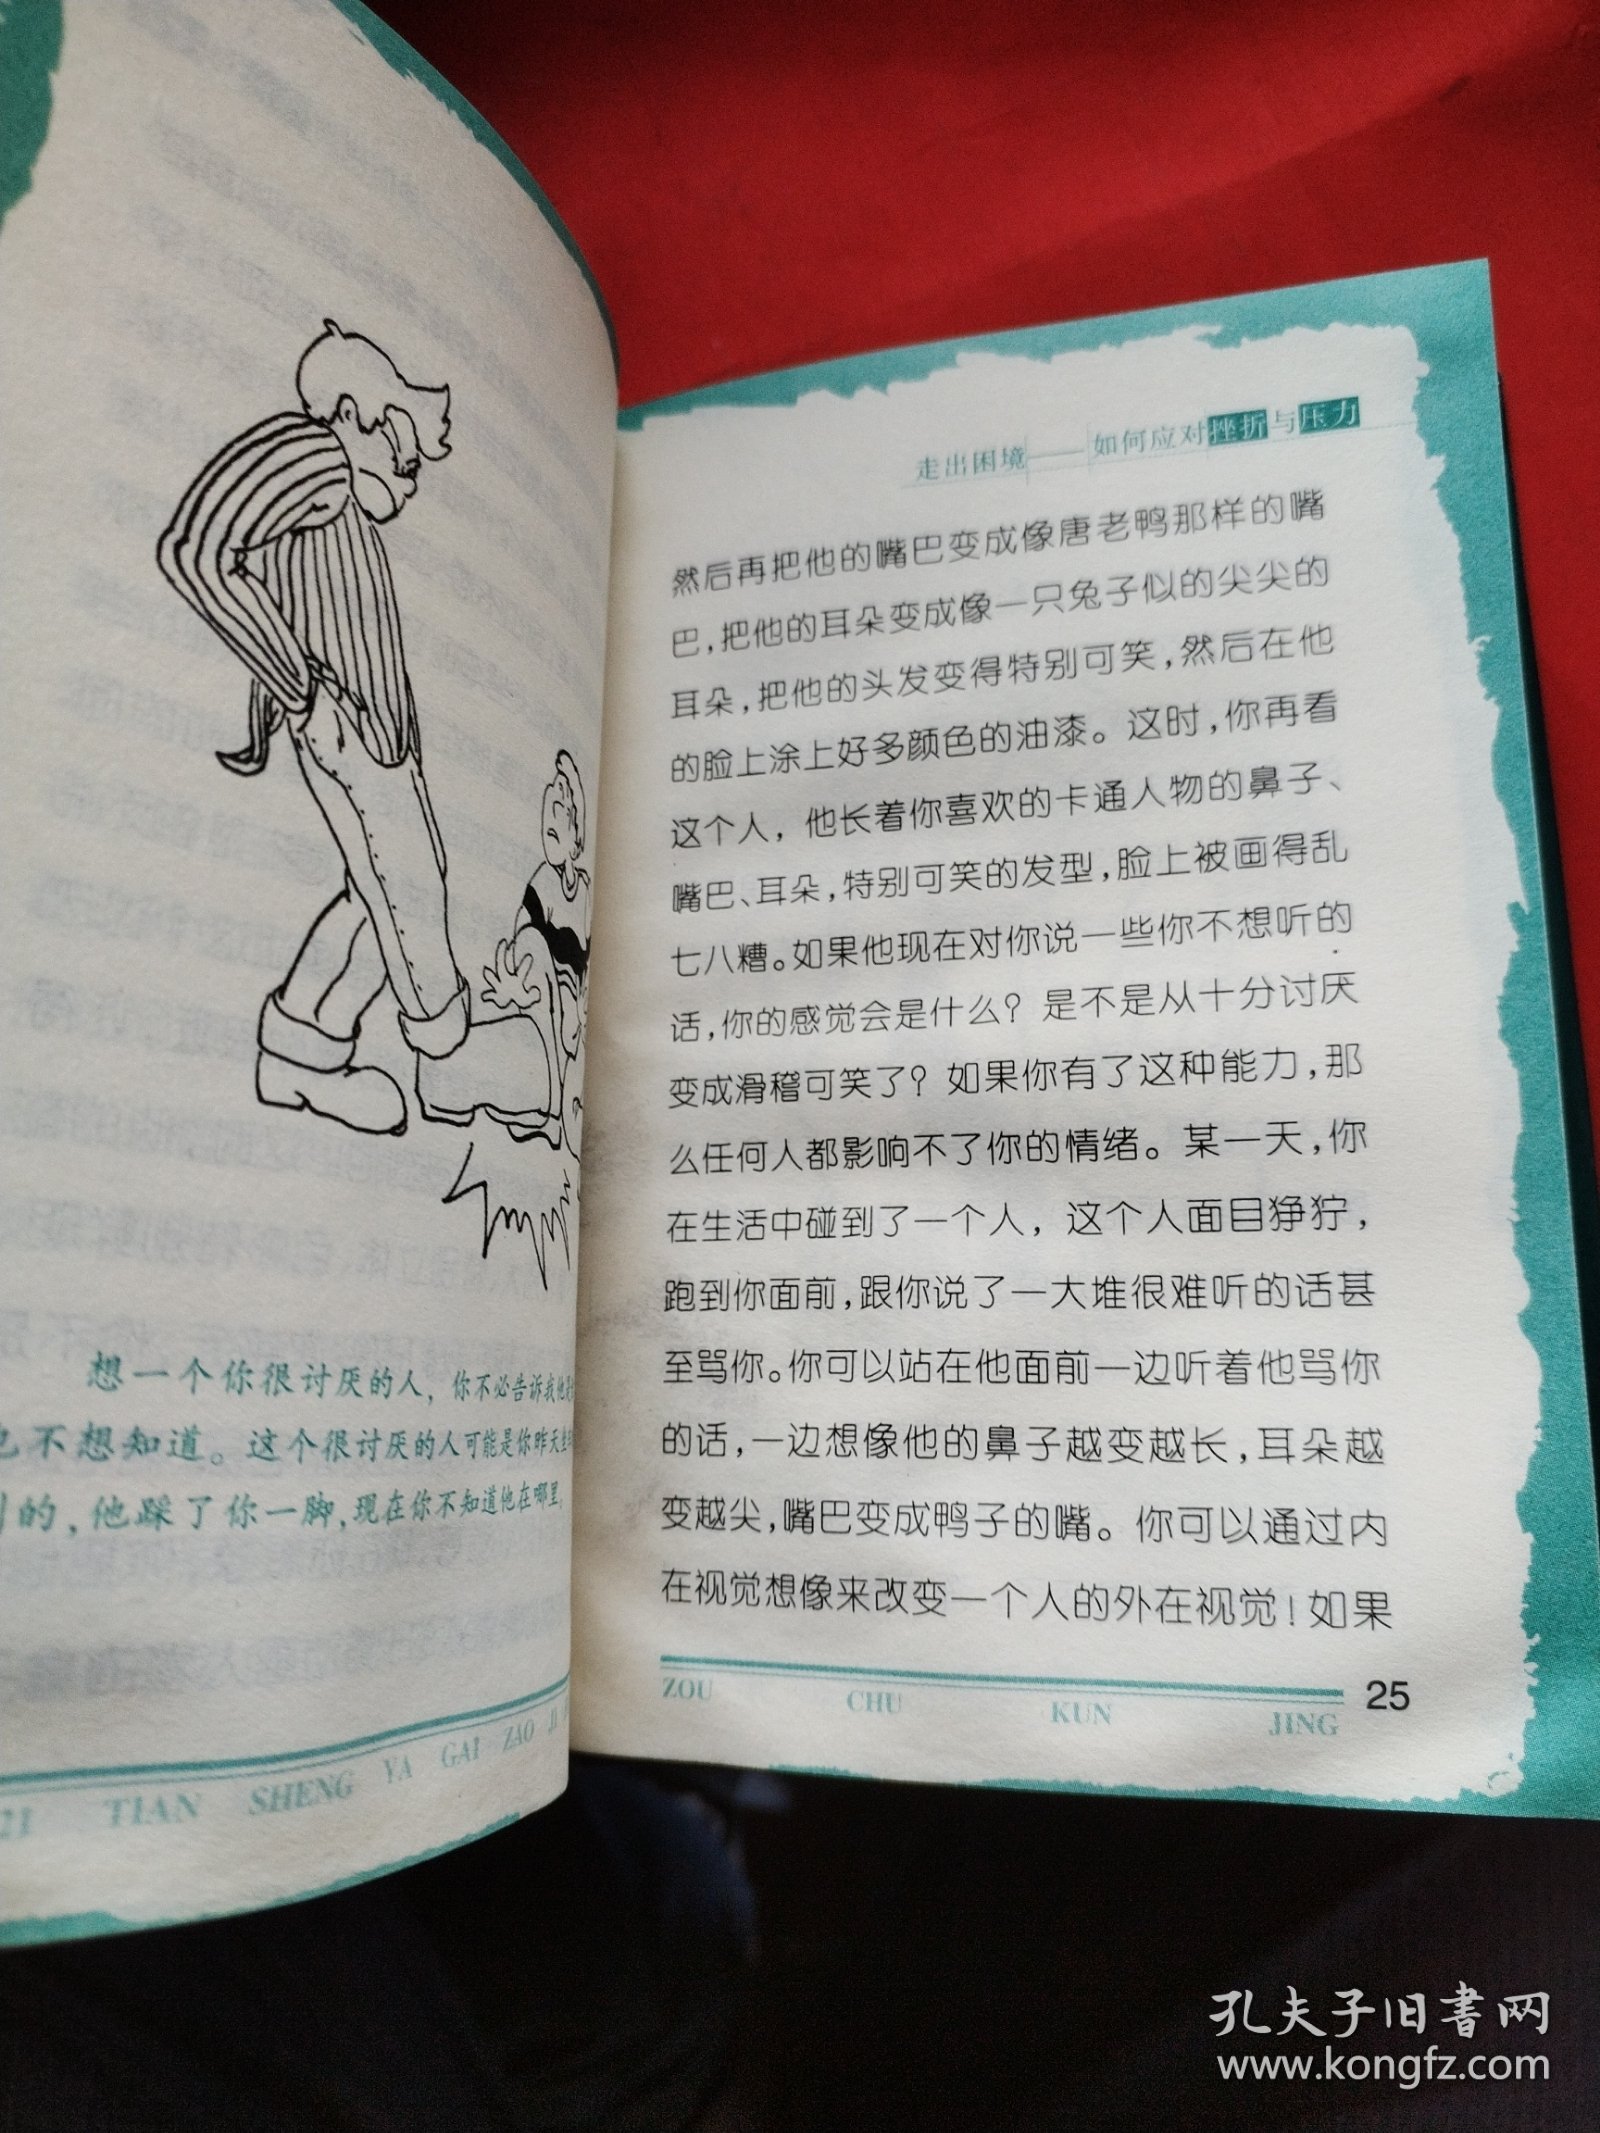 想一个你很讨厌的人，你不必告诉我他
也不想知道。这个很讨厌的人可能是你昨天
的，他踩了你一脚，现在你不知道他在哪里，
TIAN SHENG YA GAI ZAO
走出困境——如何应对挫折与压力
然后再把他的嘴巴变成像唐老鸭那样的嘴
巴，把他的耳朵变成像一只兔子似的尖尖的
耳朵，把他的头发变得特别可笑，然后在他
的脸上涂上好多颜色的油漆。这时，你再看
这个人，他长着你喜欢的卡通人物的鼻子、
嘴巴、耳朵，特别可笑的发型，脸上被画得乱
七八糟。如果他现在对你说一些你不想听的
话，你的感觉会是什么？是不是从十分讨厌
变成滑稽可笑了？如果你有了这种能力，那
么任何人都影响不了你的情绪。某一天，你
在生活中碰到了一个人，这个人面目狰狞，
跑到你面前，跟你说了一大堆很难听的话甚
至骂你。你可以站在他面前一边听着他骂你
的话，一边想像他的鼻子越变越长，耳朵越
变越尖，嘴巴变成鸭子的嘴。你可以通过内
在视觉想像来改变一个人的外在视觉！如果
ZOU CHU KUN JING 25
孔夫子旧书网
www.kongfz.com